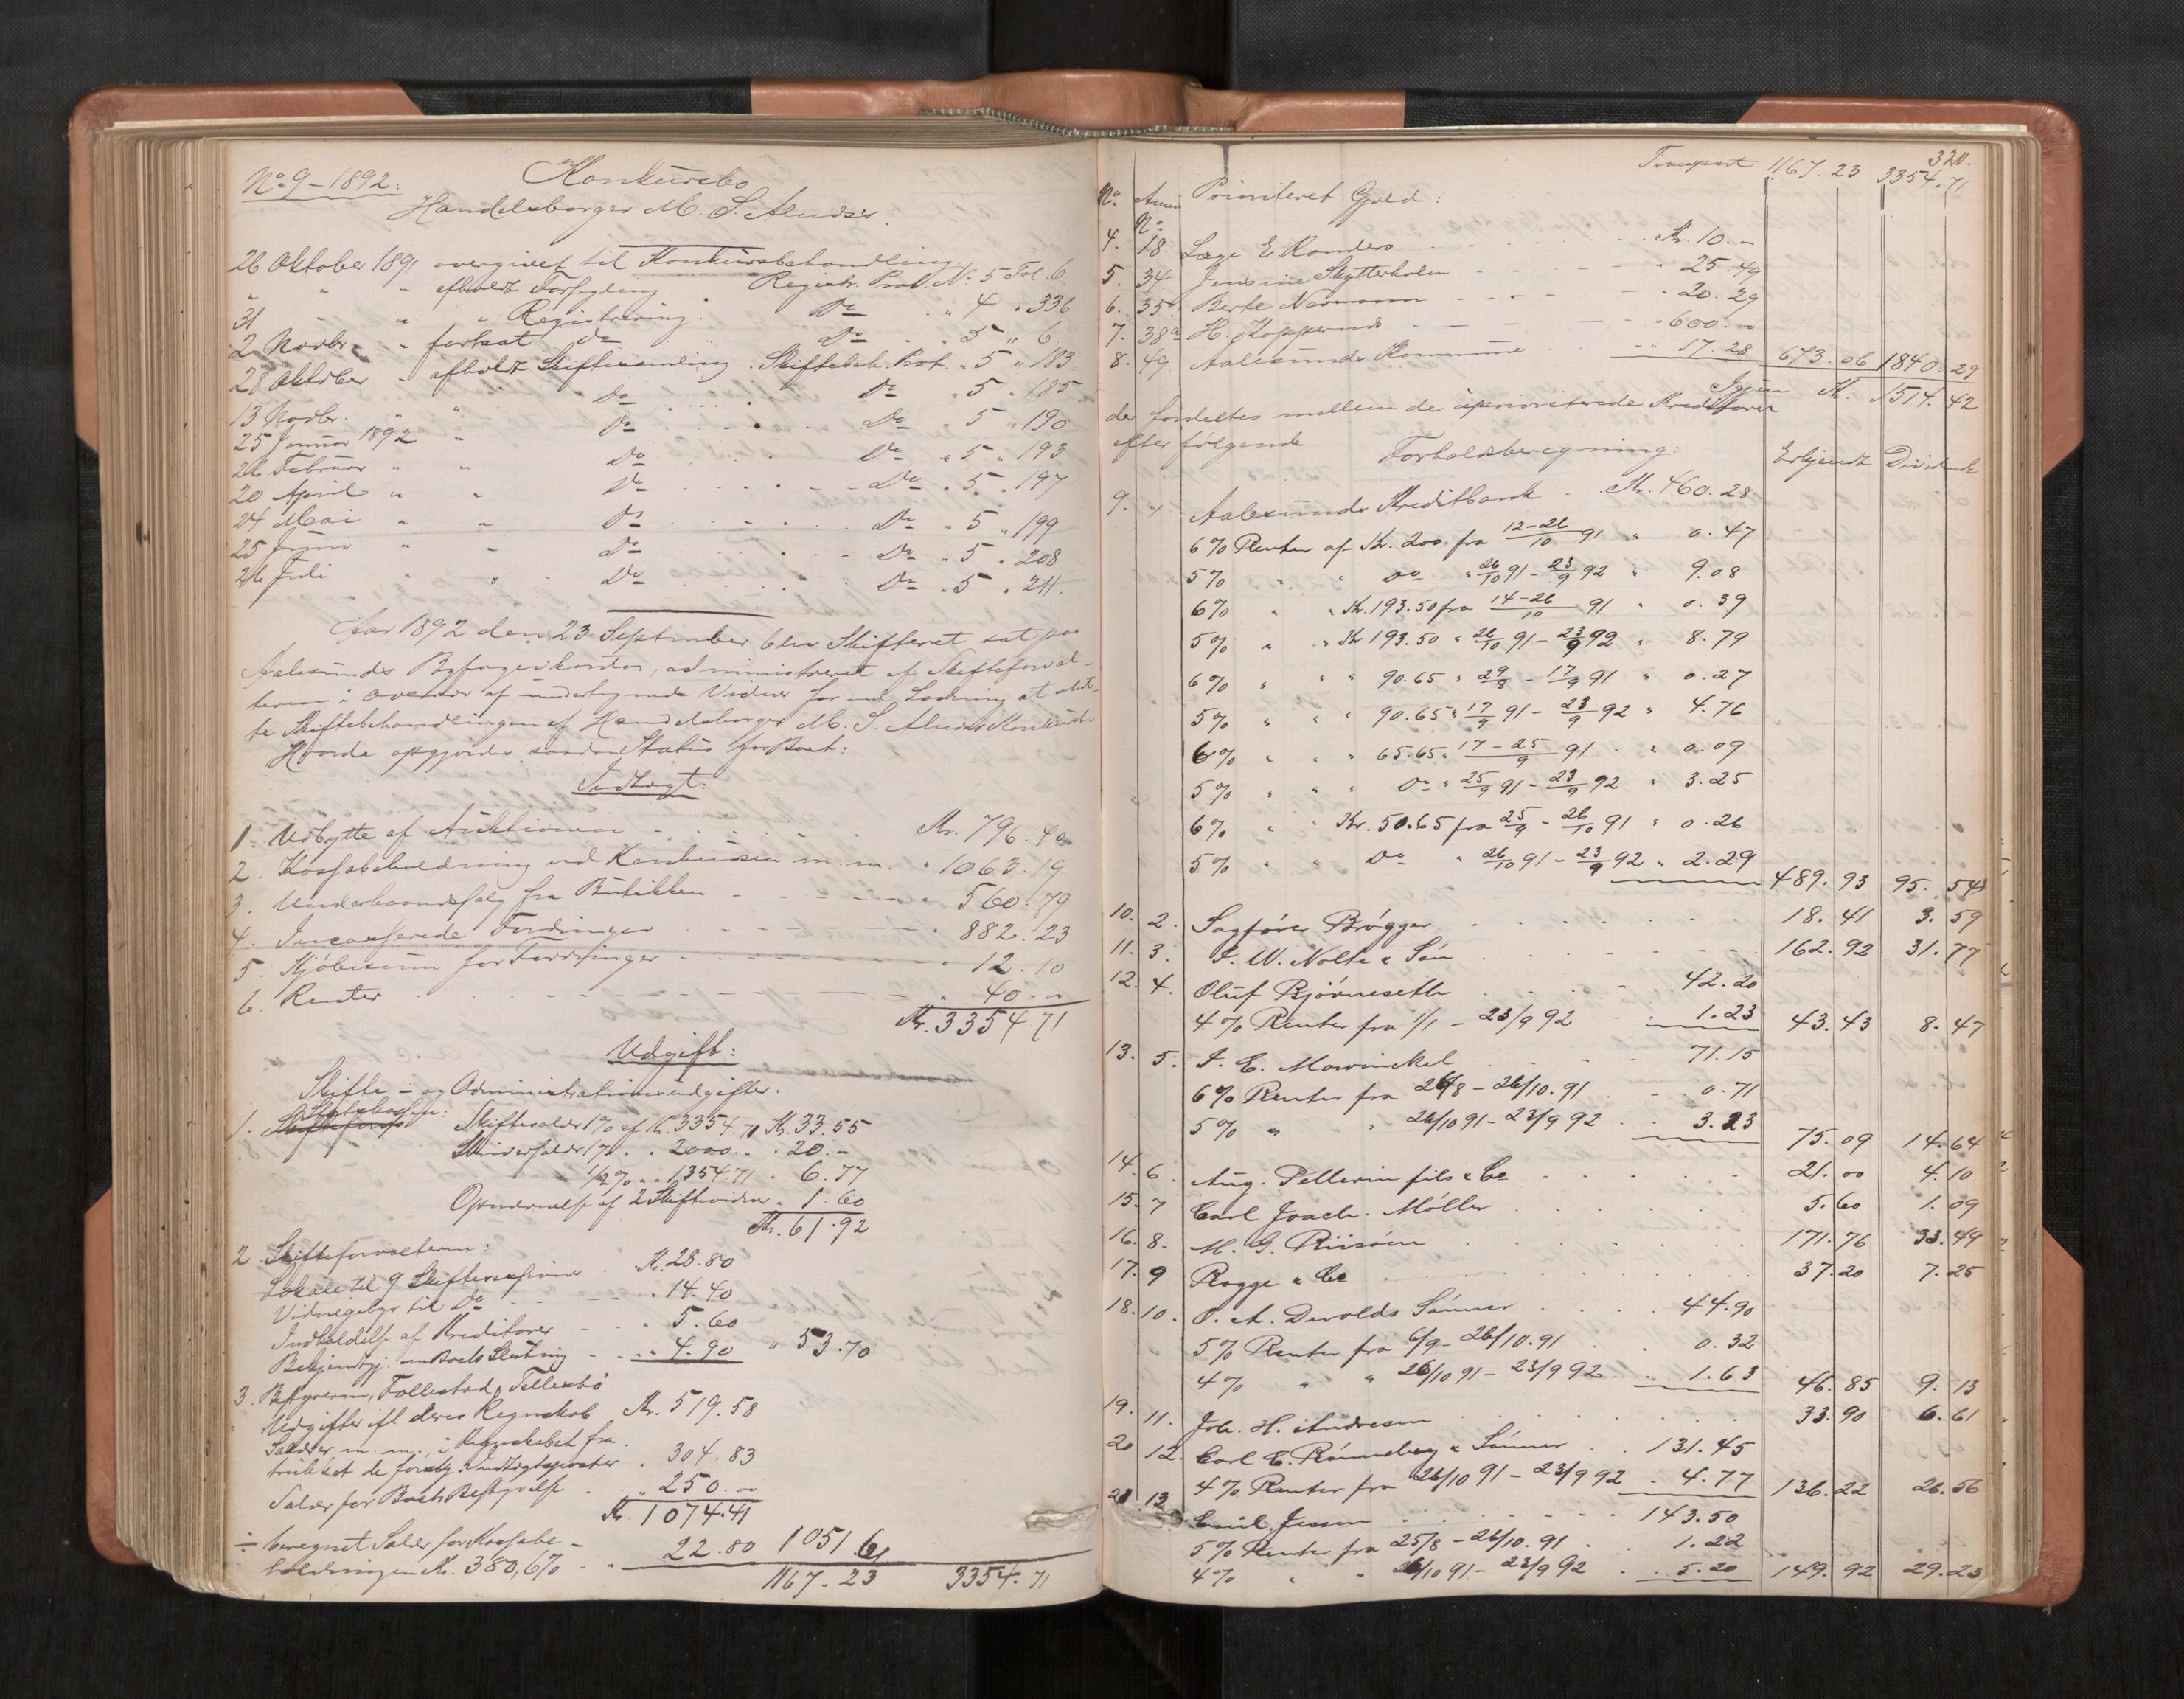 No 9 - 1892:
Konkursbo
Handelsborger M. S. Alnæs.
26 Oktober 1891 overgivet til Konkursbehandling.
" " " afholdt Forsegling. Registr. Prot. No 5 Fol. 6
31 " " " Registrering. Do " 4 " 336
2 Novbr. " fortsat do Do " 5 " 6
28 Oktober " afholdt Skiftesamling. Skiftebeh. Prot. " 5 " 183
13 Novbr. " " Do Do " 5 " 185
25 Januar 1892 " Do Do " 5 " 190
26 Februar " " Do Do " 5 " 193
20 April " " Do Do " 5 " 197
24 Mai " " Do Do " 5 " 199
25 Juni " " Do Do " 5 " 208
26 Juli " " Do Do " 5 " 211.
Aar 1892 den 23 September blev Skifteret sat paa
Aalesunds Byfogedkontor, administreret af Skifteforval-
teren i Overvær af undertegnede Vidner for ved Lodning at slut-
te Skiftebehandlingen af Handelsborger M. S. Alnæs Konkursbo
Hvorda opgjordes saadan Status for Boet:
Indtægt:
1. Udbytte af Auktionen Kr. 796.40
2. Kassabeholdning ved Konkursen m. m. " 1063.19
3. Underhaandssalg fra Butikken " 560.79
4. Incasserede Fordringer " 882.23
5. Kjøbesum for Fordringer " 12.10
6. Renter " 40."
Kr. 3354.71
Udgift:
Skifte- og Administrationsudgifter.
1. Statskassen: Skiftesalær 1% af Kr. 3354.71 Kr. 33.55
Skriversalær 1% " " 2000 " " 20."
1/2% " " 1354.71 " 6.77
Opnævnelse af 2 Skiftevidner " 1.60
Kr. 61.92
2. Skifteforvalteren:
Lokale til 9 Skiftesessioner Kr. 28.80
Vidnegebyr til Do " 14.40
Indkaldelse af Kreditorer " 5.60
Bekjendtgj. om Boets Slutning " 4.90 " 53.70
3. Bestyreren, Follestad, Tellesbø
Udgifter ifl deres Regnskab Kr. 519.58
Salær m. m., i Regnskabet fra-
trukket de Indtægtsposter " 304.83
Salær for Boets Bestyrelse " 250."
Kr. 1074.41
÷ beregnet Salær for Kassabe-
holdningen Kr. 380, 6% " 22.80 1051.61
1167.23 3354.71
320.
Transport 1167.23 3354.71
No Anm. No Prioriteret Gjeld:
4. 18. Læge E. Randers Kr. 10."
5. 34. Jensine Skytterholm " 25.49
6. 35. Berte Normann " 20.29
7. 38a H. Kopperud " 600."
8. 49 Aalesunds Kommune " 17.28 673.06 1840.29
Igjen Kr. 1514.42
der fordeltes mellem de uprioriterede Kreditorer
efter følgende
Forholdsberegning: Erkjendt Dividende
9. 1 Aalesunds Kreditbank Kr. 460.28
6% Renter af Kr. 200 fra 12-26/10 91 " 0.47
5% " " Do " 26/10 91 - 23/9 92 " 9.08
6% " " Kr. 193.50 fra 14-26/10 91 " 0.39
5% " " Kr 193.50 " 26/10 91 - 23/9 92 " 8.79
6% " " " 90.65 " 29/8 - 17/9 91 " 0.27
5% " " " 90.65 " 17/9 91 - 23/9 92 " 4.76
6% " " " 65.65 " 17-25/9 91 " 0.09
5% " " " Do " 25/9 91 - 23/9 92 " 3.25
6% " " Kr. 50.65 fra 25/9 - 26/10 91 " 0.26
5% " " Do " 26/10 91 - 23/9 92 " 2.29
489.93 95.54
10. 2. Sagfører Brøgger 18.41 3.59
11. 3. J. W. Nolte & Søn 162.92 31.77
12. 4. Oluf Bjørneseth 42.20
4% Renter fra 1/1 - 23/9 92 1.23 43.43 8.47
13. 5. J. E. Mowinckel 71.15
6% Renter fra 26/8 - 26/10.91 0.71
5% " " 26/10 91 - 23/9 92 3.23 75.09 14.64
14. 6. Aug. Pellerin fils & Co 21.00 4.10
15. 7 Carl Joach. Møller 5.60 1.09
16. 8. M. G. Riisøen 171.76 33.49
17. 9 Rogge & Co 37.20 7.25
18. 10. O. A. Devolds Sønner 44.90
5% Renter fra 6/9 - 26/10.91 0.32
4% " " 26/10 91 - 23/9 92 1.63 46.85 9.13
19. 11. Joh. H. Andresen 33.90 6.61
20 12. Carl E. Rønneberg & Sønner 131.45
4% Renter fra 26/10 91 - 23/9 92 4.77 136.22 26.56
21 13. Emil Jessen 143.50
5% Renter fra 25/8 - 26/10.91 1.22
4% " " 26/10 91 - 23/9 92 5.20 149.92 29.23